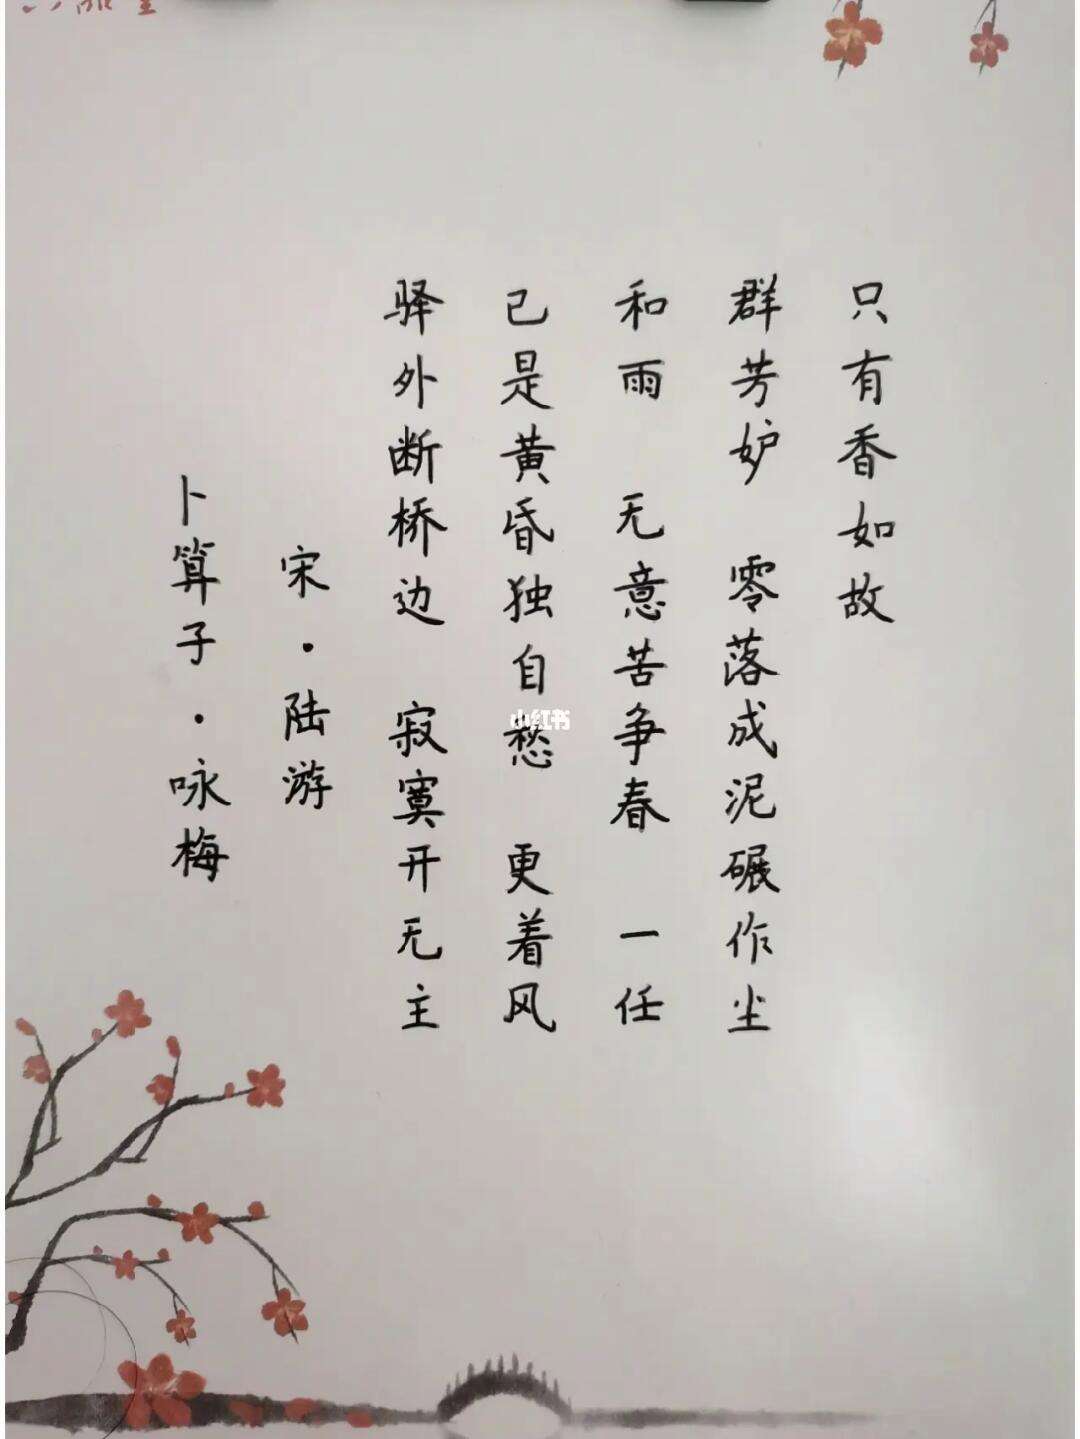 卜算子·咏梅
宋·陆游
驿外断桥边 寂寞开无主
已是黄昏独自愁 更着风
和雨 无意苦争春 一任
群芳妒 零落成泥碾作尘
只有香如故
小红书